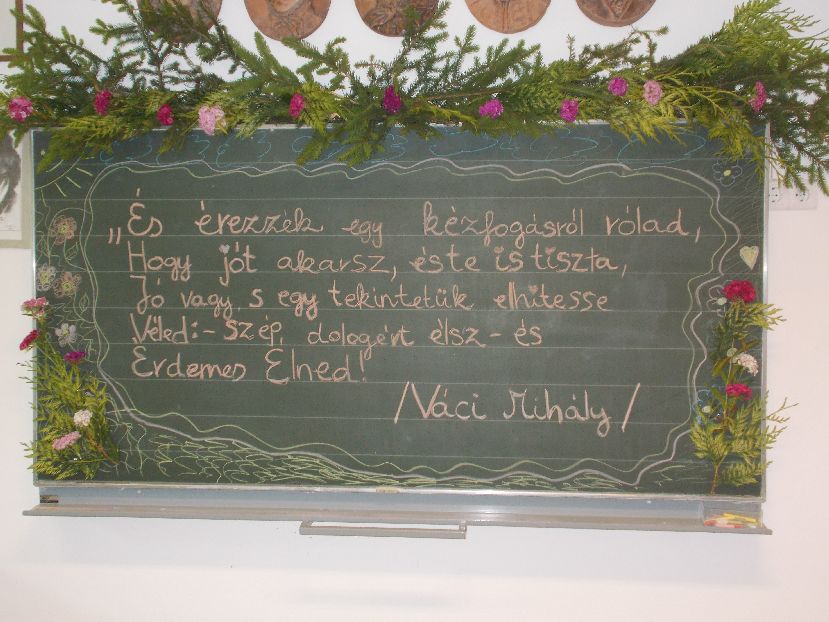 „És érezzék egy kézfogásról rólad,
Hogy jót akarsz, és te is tiszta,
Jó vagy, s egy tekintetük elhitesse
Véled: - szép, dologért élsz - és
Érdemes Élned!
/Váci Mihály/